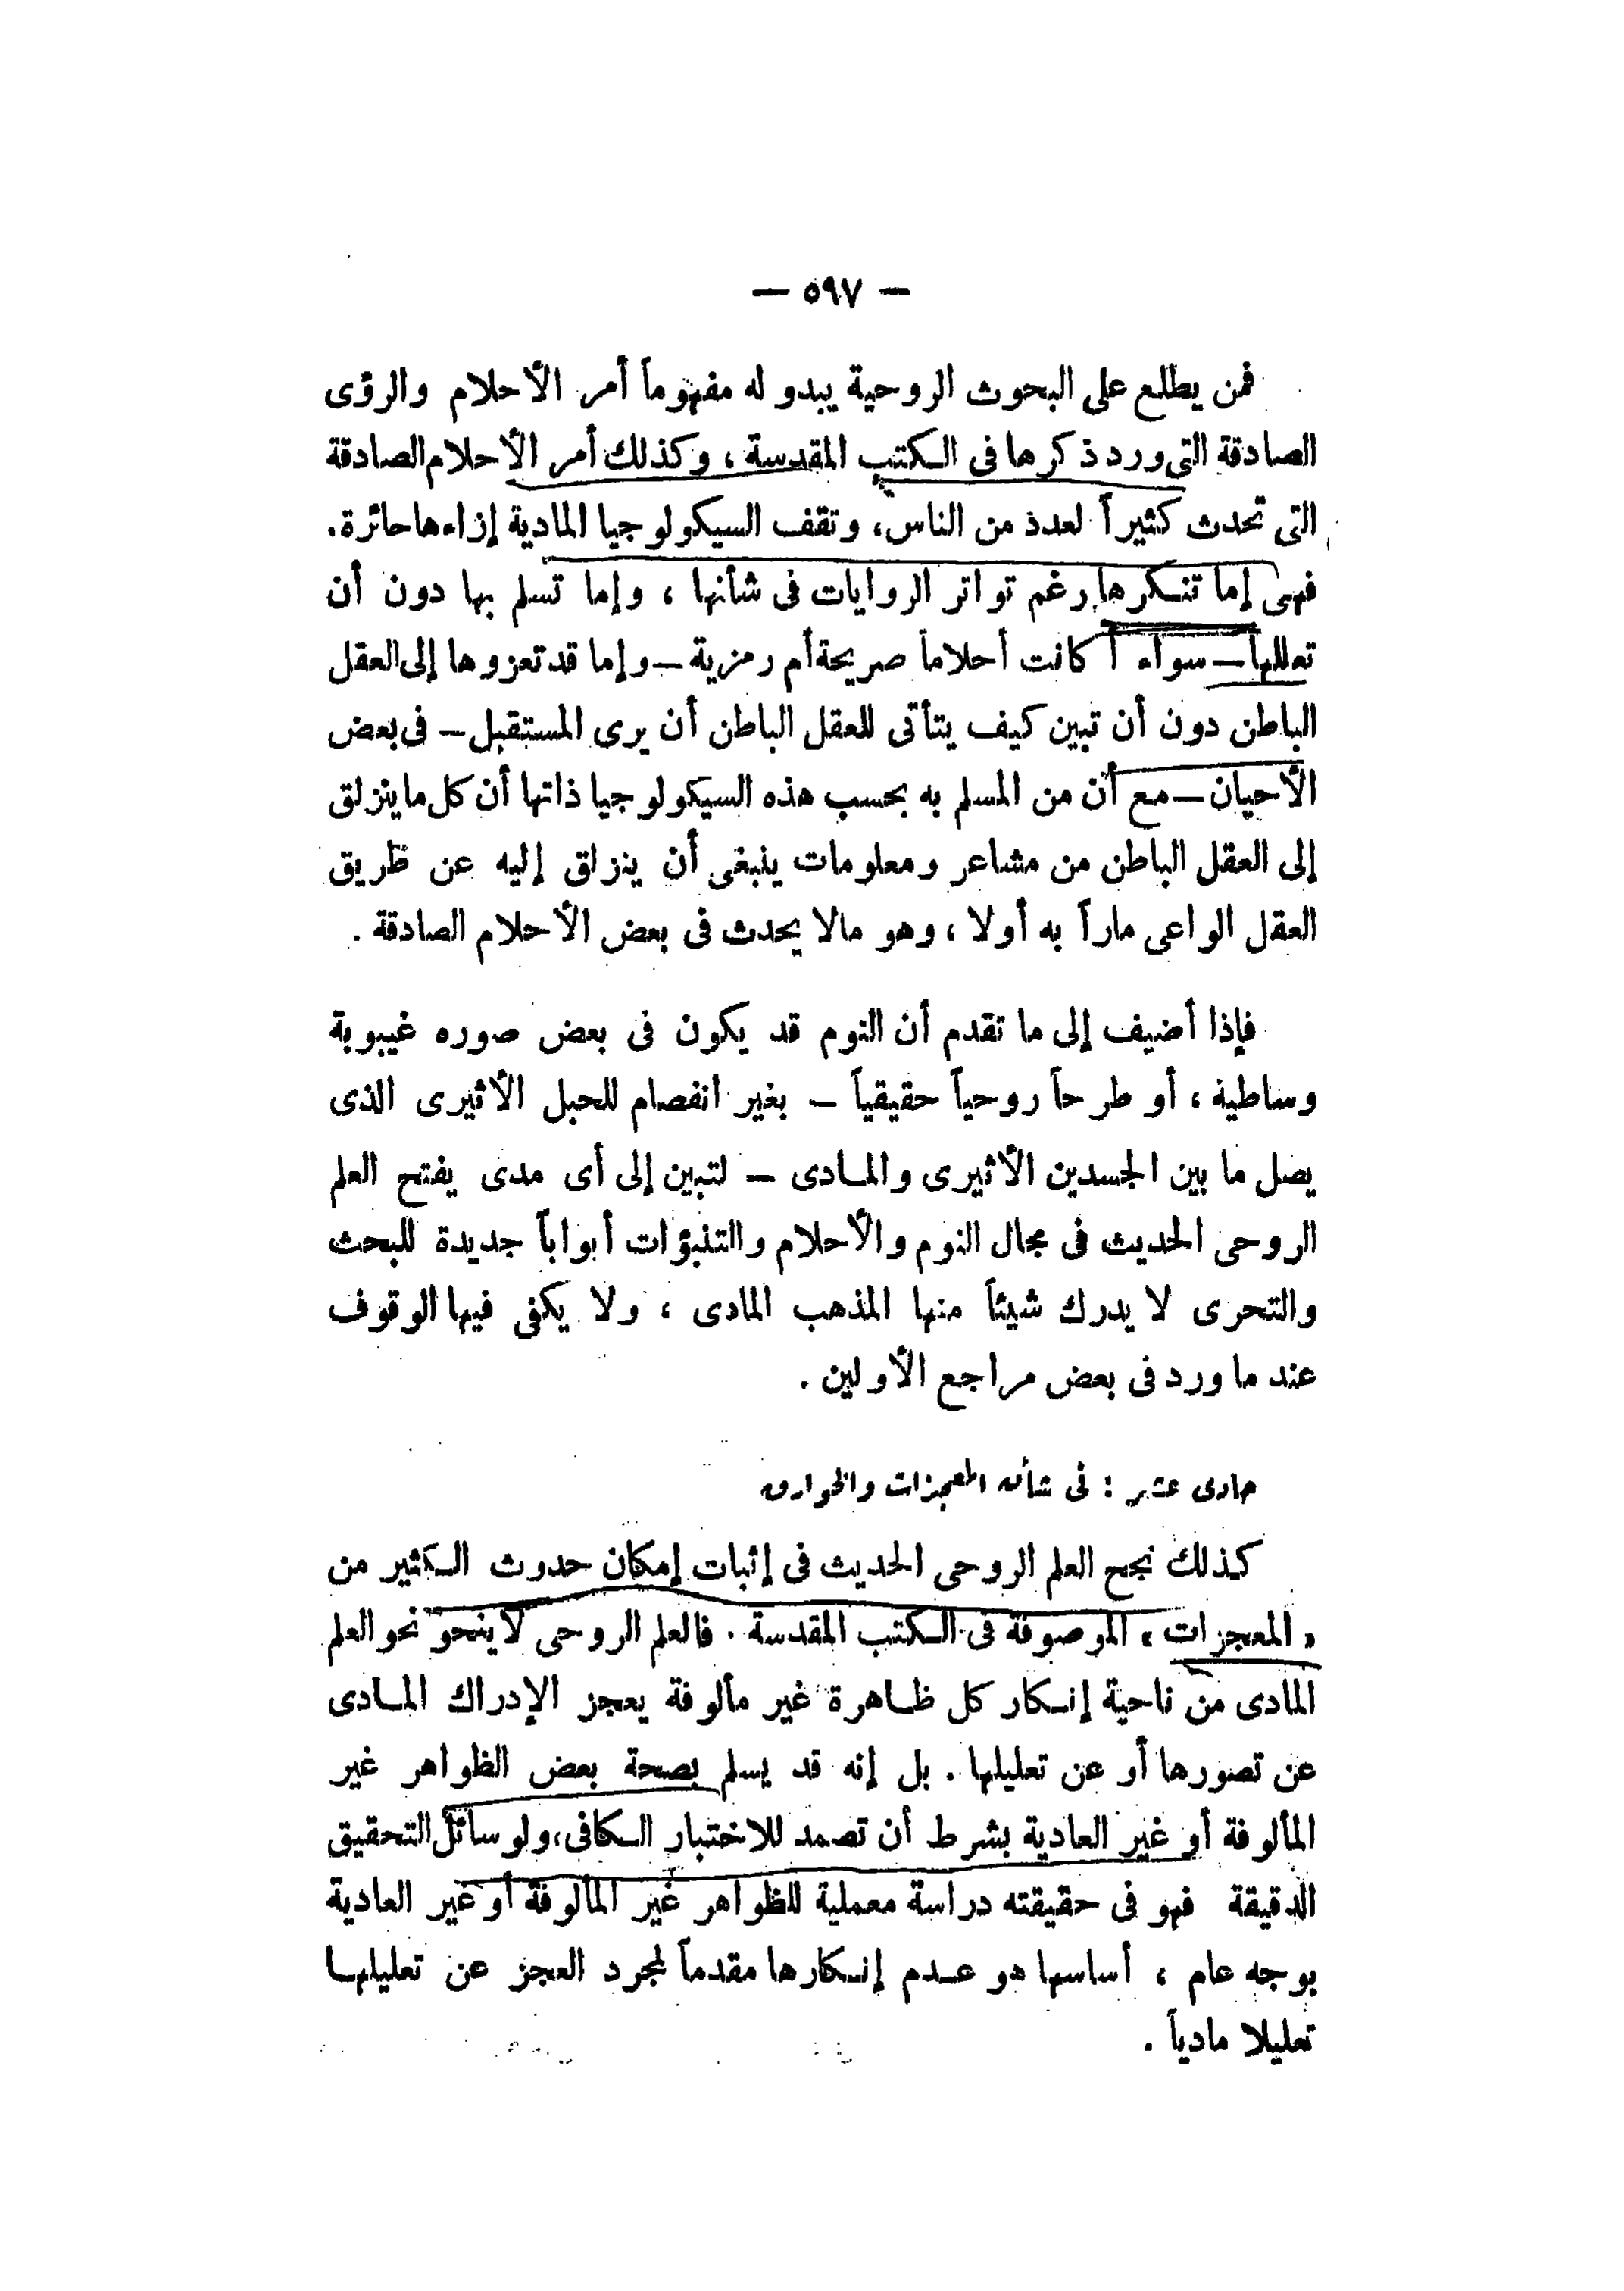 — ٥٩٧ —
فمن يطلع على البحوث الروحية يبدو له مفهوماً أمر الأحلام والرؤى
الصادقة التى ورد ذكرها فى الكتب المقدسة ، وكذلك أمر الأحلام الصادقة
التى تحدث كثيراً لعدد من الناس، وتقف السيكولوجيا المادية إزاءها حائرة.
فهى إما تنكرها رغم تواتر الروايات فى شأنها ، وإما تسلم بها دون أن
تعللها – سواء أ كانت أحلاماً صريحة أم رمزية – وإما قد تعزوها إلى العقل
الباطن دون أن تبين كيف يتأتى للعقل الباطن أن يرى المستقبل – فى بعض
الأحيان – مع أن من المسلم به بحسب هذه السيكولوجيا ذاتها أن كل ما ينزلق
إلى العقل الباطن من مشاعر ومعلومات ينبغى أن ينزلق إليه عن طريق
العقل الواعى ماراً به أولا ، وهو مالا يحدث فى بعض الأحلام الصادقة .
فإذا أضيف إلى ما تقدم أن النوم قد يكون فى بعض صوره غيبوبة
وساطية ، أو طرحاً روحياً حقيقياً – بغير انفصام للحبل الأثيرى الذى
يصل ما بين الجسدين الأثيرى والمـادى – لتبين إلى أى مدى يفتح العلم
الروحى الحديث فى مجال النوم والأحلام والتنبؤات أبواباً جديدة للبحث
والتحرى لا يدرك شيئاً منها المذهب المادى ، ولا يكفى فيها الوقوف
عند ما ورد فى بعض مراجع الأولين .
حادى عشر : فى شأن المعجزات والخوارق
كذلك نجح العلم الروحى الحديث فى إثبات إمكان حدوث الـكثير من
« المعجزات » الموصوفة فى الـكتب المقدسة . فالعلم الروحى لا ينحو نحو العلم
المادى من ناحية إنـكار كل ظـاهرة غير مألوفة يعجز الإدراك المـادى
عن تصورها أو عن تعليلها . بل إنه قد يسلم بصحة بعض الظواهر غير
المألوفة أو غير العادية بشرط أن تصمد للاختبار الـكافى، ولوسائل التحقيق
الدقيقة فهو فى حقيقته دراسة معملية للظواهر غير المألوفة أو غير العادية
بوجه عام ، أساسها هو عـدم إنـكارها مقدماً لمجرد العجز عن تعليلهـا
تعليلا مادياً .